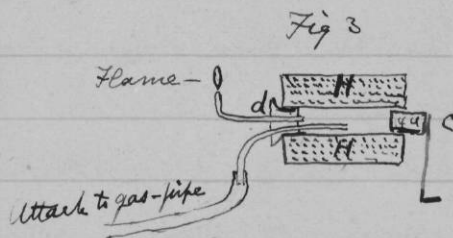 Fig 3
Flame -
H
d
C
H
Attach to gas-pipe